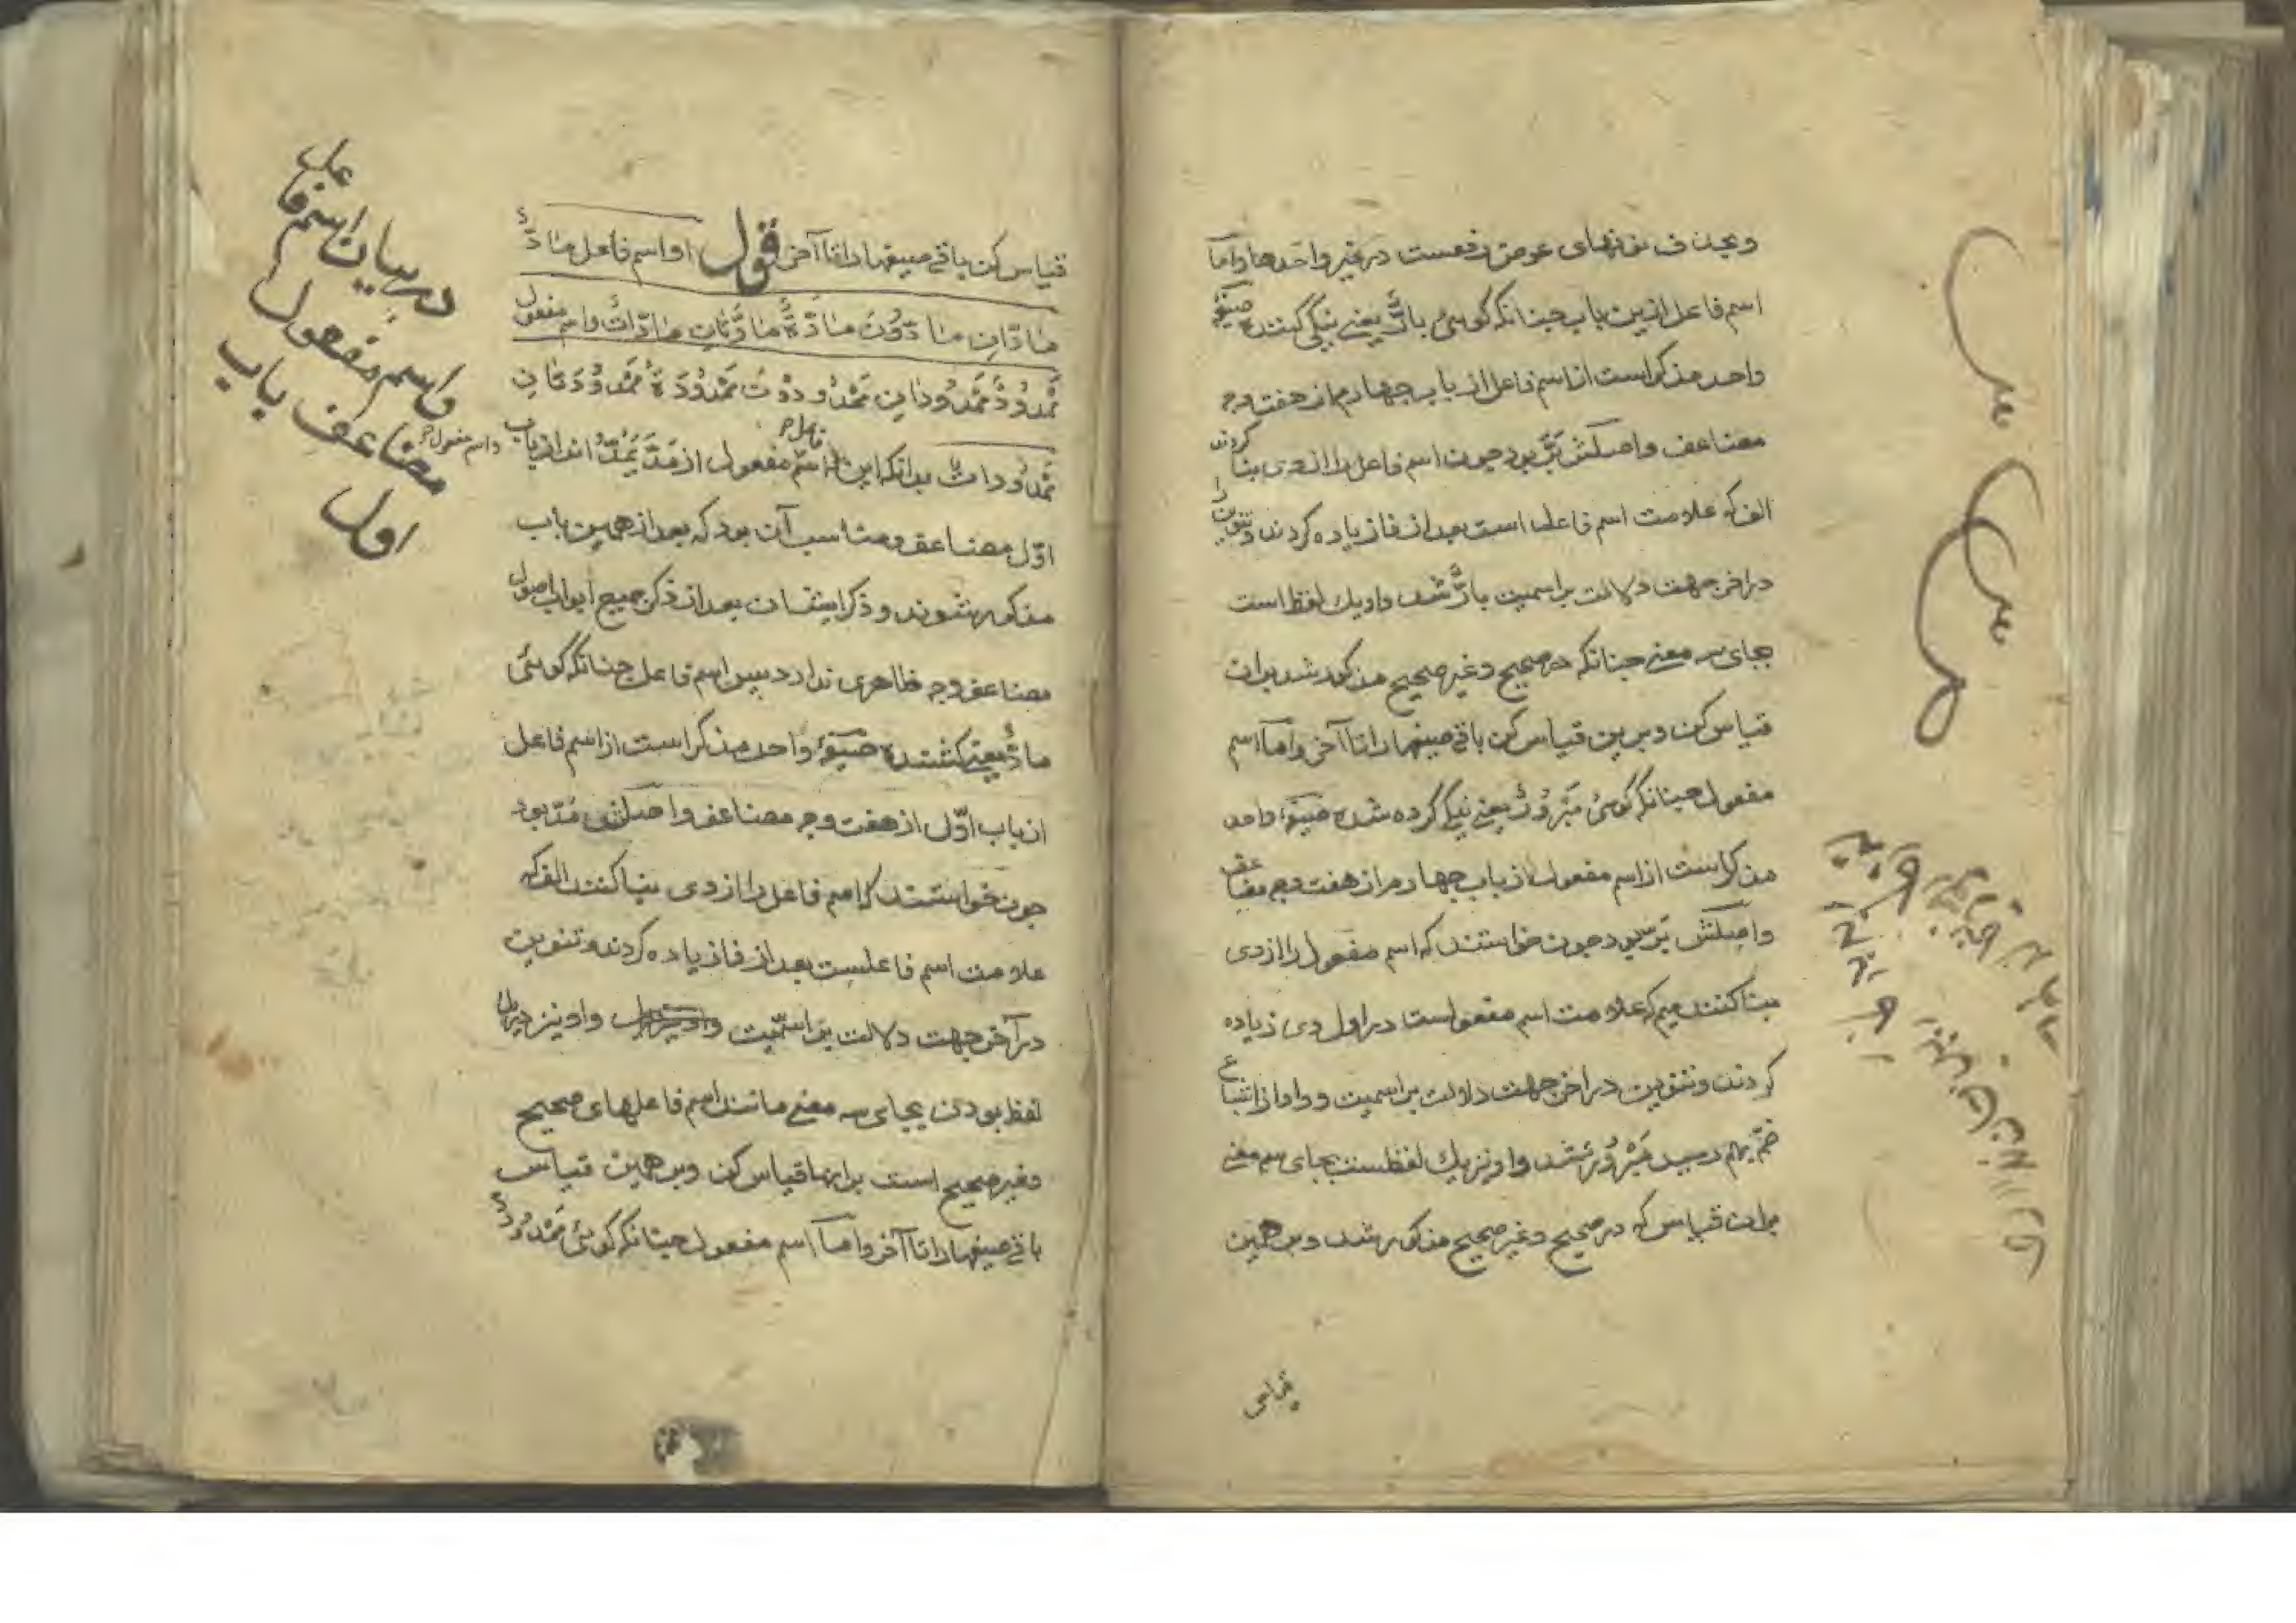 وبحذف نونهای عوض رفعست در غیر واحدها واما
اسم فاعل ازین باب چنانکه کوئی بارٌّ یعنی نیکی کننده صیغهٔ
واحد مذکر است از اسم فاعل از باب چهارم از هفت وجه
مضاعف واصلش بَرَّ بود چون اسم فاعل را از وی بنا کردند
الف که علامت اسم فاعل است بعد از فا زیاده کردند و تنوین را
در اخر جهت دلالت بر اسمیت بارٌّ شد واو یك لفظ است
بجای سه معنی چنانکه در صحیح وغیر صحیح مذکور شد بران
قیاس کن وبرین قیاس کن باقی صیغها را تا آخر واما اسم
مفعول چنانکه کوئی مَبْرُوْرٌ یعنی نیکی کرده شده صیغهٔ واحد
مذکر است از اسم مفعول از باب چهارم از هفت وجه مضاعف
واصلش بَرَّ بود چون خواستند که اسم مفعول را از وی
بنا کنند میم که علامت اسم مفعولست در اول وی زیاده
کردند وتنوین در اخر جهت دلالت بر اسمیت وواو از اشباع
ضمّ بهم رسید مَبْرُوْرٌ شد واو نیز یك لفظست بجای سه معنی
بران قیاس که در صحیح وغیر صحیح مذکور شد وبر همین
قیاس کن باقی صیغها را تا آخر قول او اسم فاعل مادٌّ
مادّانِ مادّوْنَ مادّةٌ مادّتانِ مادّاتٌ واسم مفعول
مَمْدُوْدٌ مَمْدُودانِ مَمْدُودُوْنَ مَمْدُوْدَةٌ مَمْدُوْدَتانِ
مَمْدُوداتٌ بدانکه این اسم فاعل واسم مفعول از مَدَّ یَمُدُّ اند از باب
اوّل مضاعف ومناسب آن بود که بعد از همین باب
مذکور شوند وذکر ایشان بعد از ذکر جمیع ابواب اصول
مضاعف وجه ظاهری ندارد پس اسم فاعل چنانکه کوئی
مادٌّ یعنی کشنده صیغهٔ واحد مذکر است از اسم فاعل
از باب اوّل از هفت وجه مضاعف واصلش مَدَّ بود
چون خواستند که اسم فاعل را از وی بنا کنند الف که
علامت اسم فاعلست بعد از فا زیاده کردند وتنوین
در آخر جهت دلالت بر اسمیّت واو نیز در یك
لفظ بودن بجای سه معنی مانند اسم فاعلهای صحیح
وغیر صحیح است بر انها قیاس کن وبر همین قیاس
باقی صیغها را تا آخر واما اسم مفعول چنانکه کوئی مَمْدُوْدٌ
در بیان اسم فاعل
واسم مفعول
مضاعف باب
اول